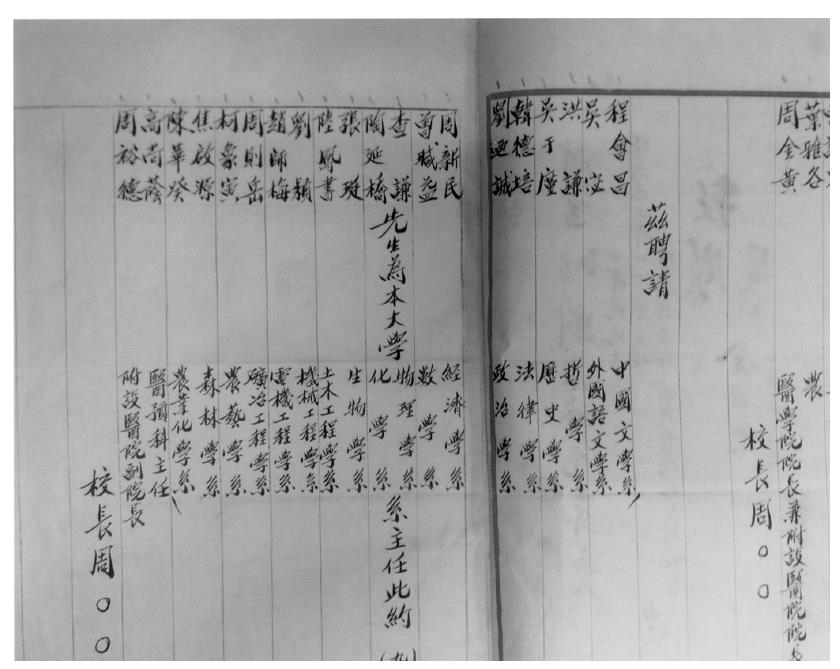 葉雅各 農
周金黃 醫學院院長兼附設醫院院長
校長周○○
茲聘請
程會昌 中國文學系
吳宓 外國語文學系
洪謙 哲學系
吳于廑 歷史學系
韓德培 法律學系
劉迺誠 政治學系
周新民 經濟學系
曾瑊益 數學系
查謙 物理學系
先生為本大學 系主任此約 (九
陶延橋 化學系
張珽 生物學系
陸鳳書 土木工程學系
劉穎 機械工程學系
趙師梅 電機工程學系
周則岳 礦冶工程學系
柯象寅 農藝學系
焦啟源 森林學系
陳華癸 農業化學系
高尚蔭 醫預科主任
周裕德 附設醫院副院長
校長周○○